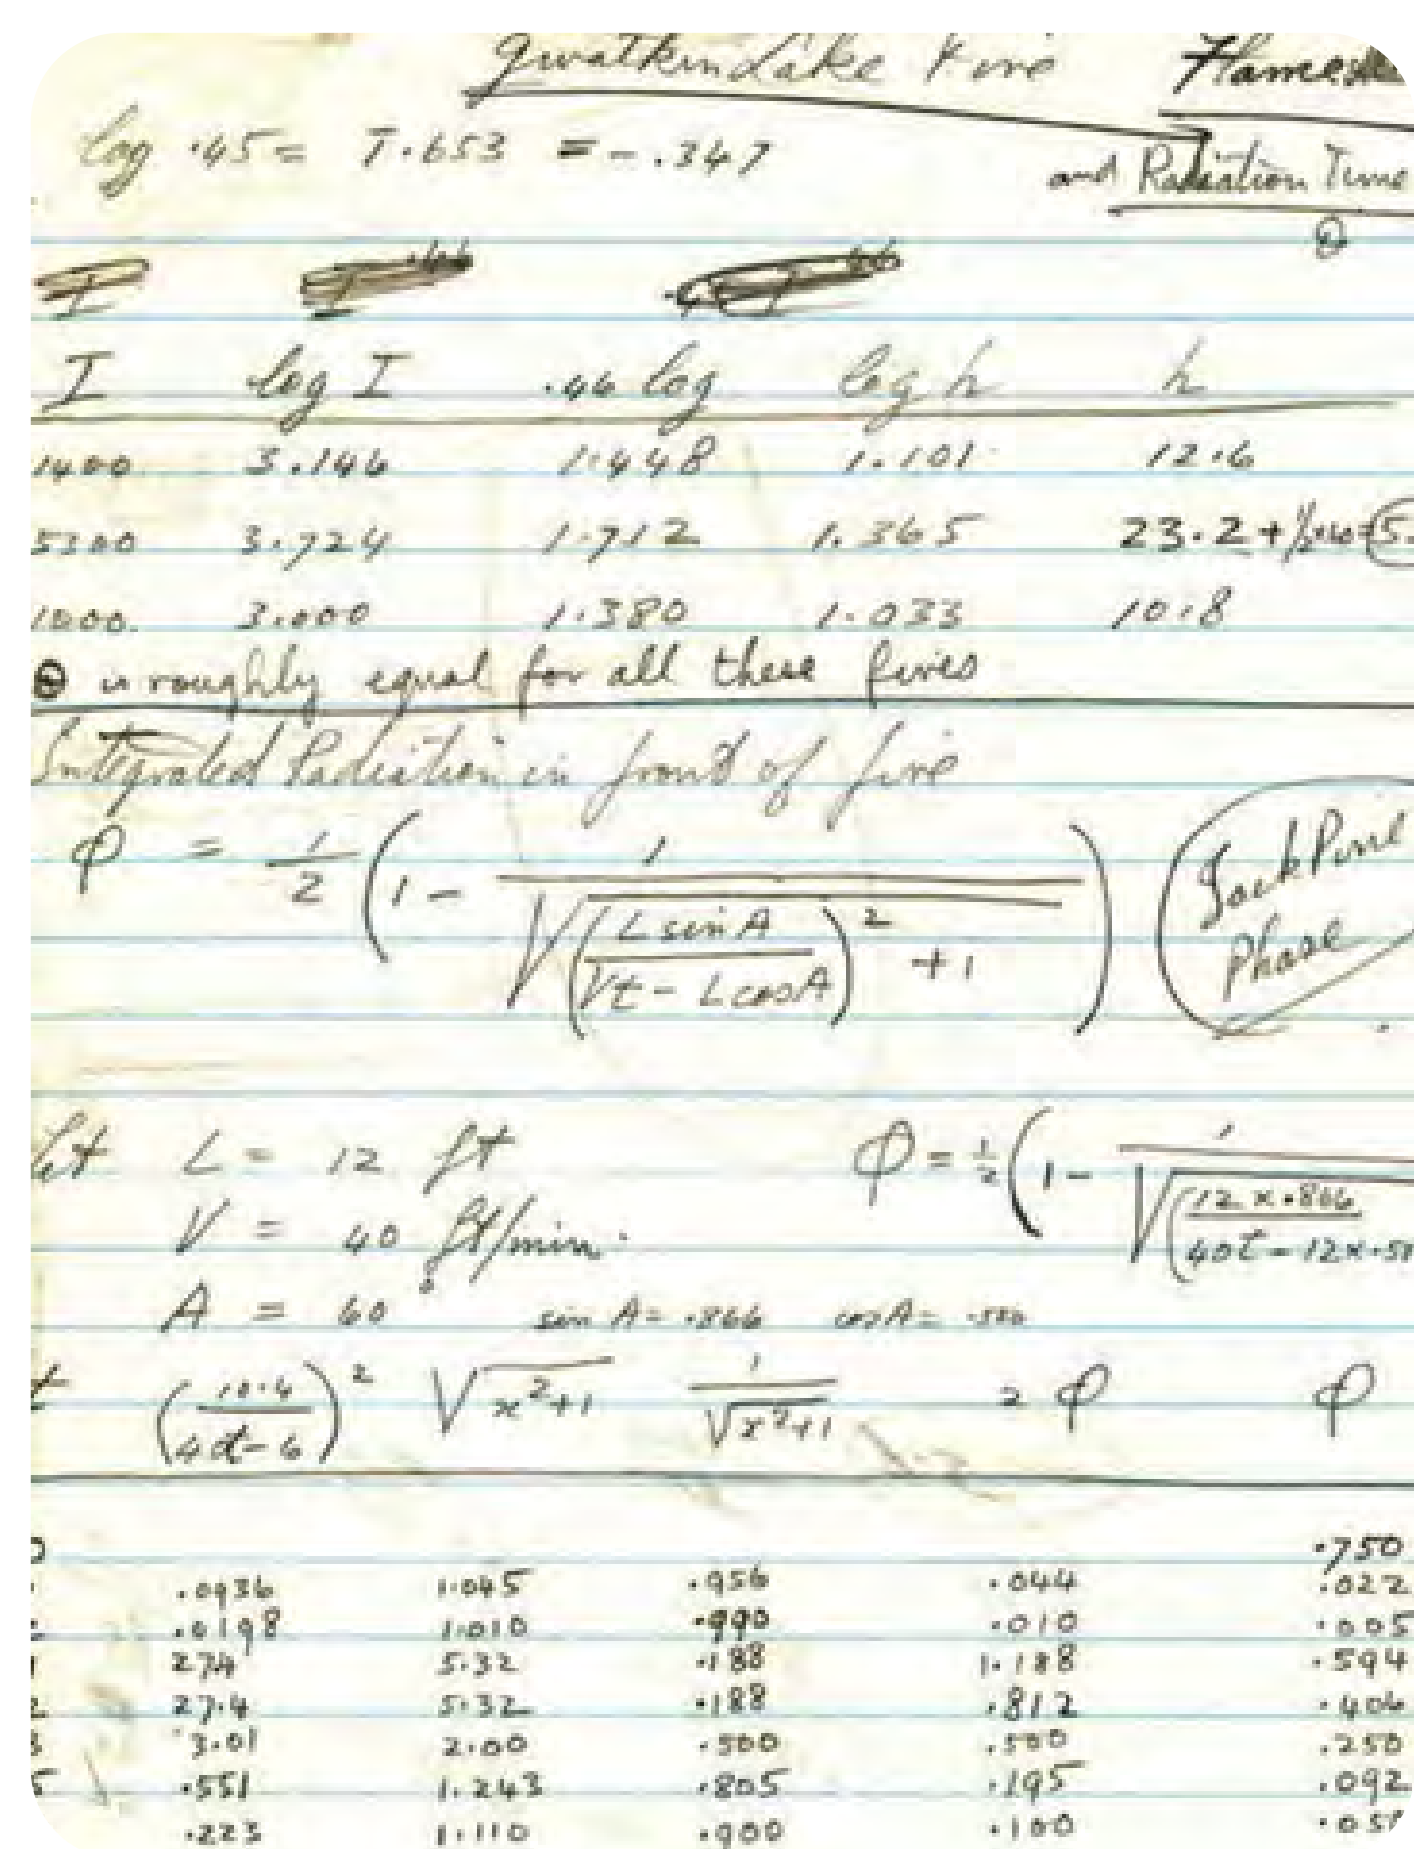 Gwatkin Lake Fire Flame
log .45 = 1̅.653 = -.347
and Radiation Time
Θ
I log I .46 log log h h
1400 3.146 1.448 1.101 12.6
5300 3.724 1.712 1.365 23.2 + 1/2 × 60 = 5
1000. 3.000 1.380 1.033 10.8
Θ is roughly equal for all these fires
Integrated Radiation in front of fire
φ = 1/2 (1 - 1/√((L sin A/(Vt - L cos A))² + 1)) Jack Pine
Phase
Let L = 12 ft φ = 1/2 (1 - 1/√((12 x .866/(40t - 12 x .5
V = 40 ft/min.
A = 60° sin A = .866 cos A = .500
t (10.4/(40t - 6))² √(x²+1) 1/√(x²+1) 2φ φ
0 .750
.0936 1.045 .956 .044 .022
.0198 1.010 .990 .010 .005
1 274 5.32 .188 1.188 .594
2 27.4 5.32 .188 .812 .406
3 3.01 2.00 .500 .500 .250
5 .551 1.243 .805 .195 .092
.223 1.110 .900 .100 .05